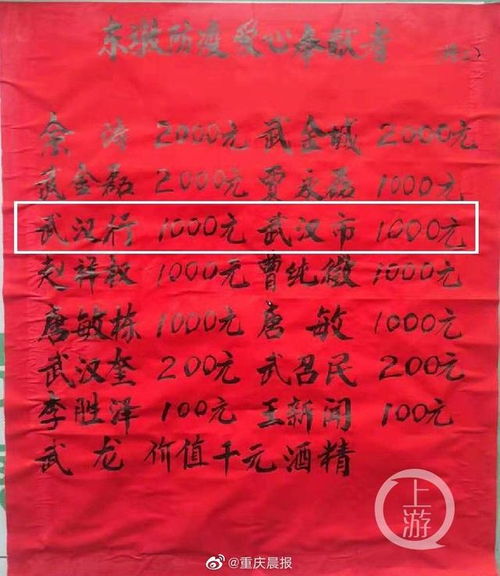 东墩防疫爱心奉献者
余涛 2000元 武金城 2000元
武金磊 2000元 贾永磊 1000元
武汉行 1000元 武汉市 1000元
赵祥敏 1000元 曹纯俊 1000元
唐敏栋 1000元 唐敏 1000元
武汉奎 200元 武召民 200元
李胜泽 100元 王新闻 100元
武龙 价值千元酒精
上游
@重庆晨报